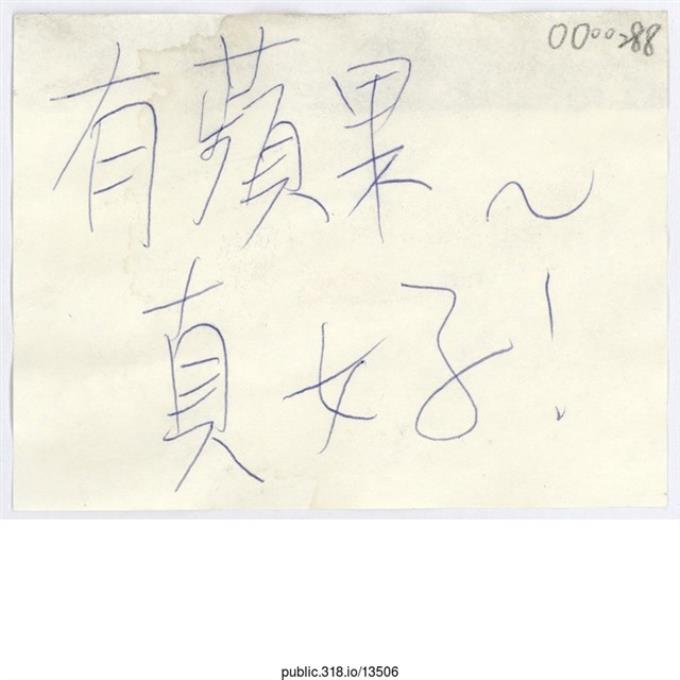 0000288
有蘋果～
真好！
public.318.io/13506